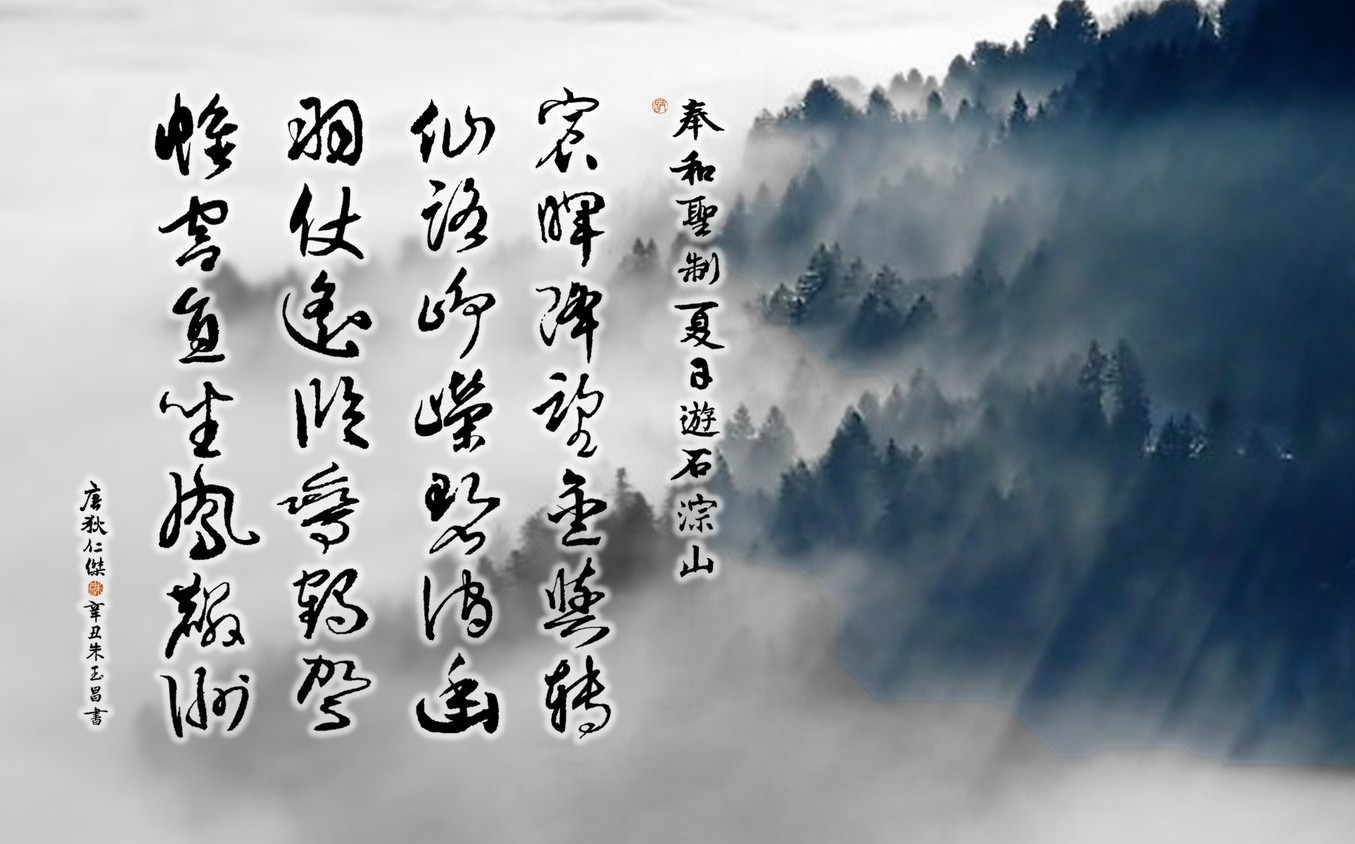 奉和聖制夏日遊石淙山
宸暉降望金輿轉
仙路崢嶸碧澗幽
羽仗遙臨鸞鶴駕
帷宮直坐鳳麟洲
唐狄仁傑 辛丑朱玉昌書